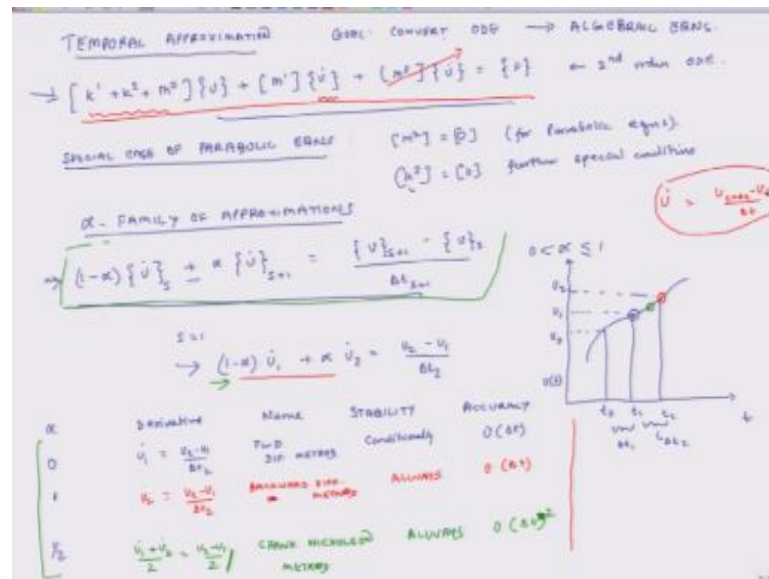 TEMPORAL APPROXIMATION GOAL: CONVERT ODE → ALGEBRAIC EQNS.
[k¹ + k² + m⁰] {U} + [m¹] {U̇} + [m²] {Ü} = {0} ← 2nd order ODE.
SPECIAL CASE OF PARABOLIC EQNS: [m²] = [0] (for Parabolic eqns).
[k²] = [0] further special condition
α - FAMILY OF APPROXIMATIONS
⇒ (1-α) {U̇}ₛ + α {U̇}ₛ₊₁ = {U}ₛ₊₁ - {U}ₛ / Δtₛ₊₁
0 < α ≤ 1
S = 1
→ (1-α) U̇₁ + α U̇₂ = U₂ - U₁ / Δt₂
U₂
U₁
U₀
U(t)
t₀ t₁ t₂ t
Δt₁ Δt₂
α Derivative Name STABILITY ACCURACY
0 U̇₁ = U₂-U₁ / Δt₂ FWD DIF METHOD Conditionally O(Δt)
1 U̇₂ = U₂-U₁ / Δt₂ BACKWARD DIFF. METHOD ALWAYS O(Δt)
½ U̇₁+U̇₂ / 2 = U₂-U₁ / CRANK NICHOLSON METHOD ALWAYS O(Δt)²